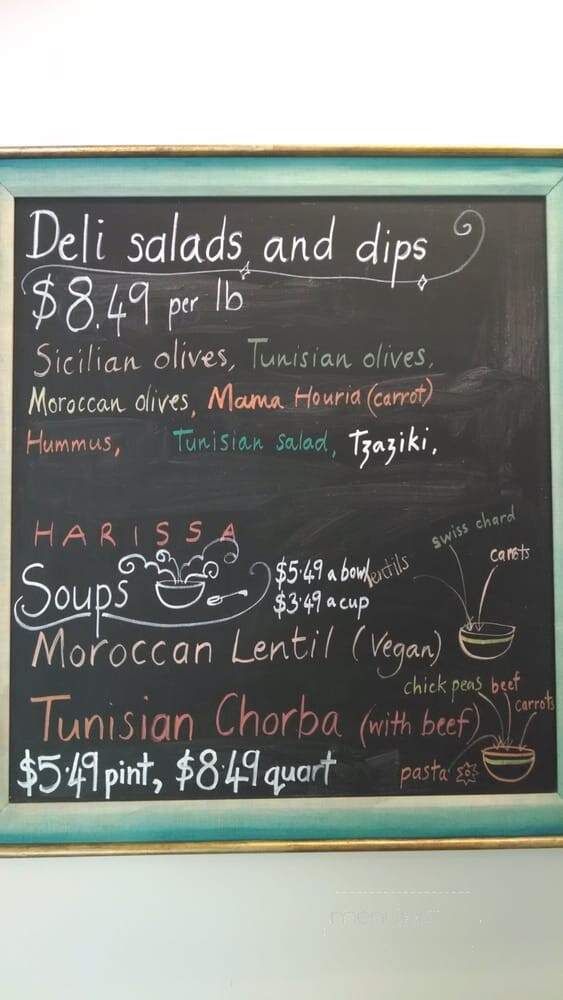 Deli salads and dips
$8.49 per lb
Sicilian olives, Tunisian olives,
Moroccan olives, Mama Houria (carrot)
Hummus, Tunisian salad, Tzaziki,
HARISSA
Soups
$5.49 a bowl
$3.49 a cup
lentils
swiss chard
carrots
Moroccan Lentil (Vegan)
chick peas beef
carrots
Tunisian Chorba (with beef)
$5.49 pint, $8.49 quart
pasta